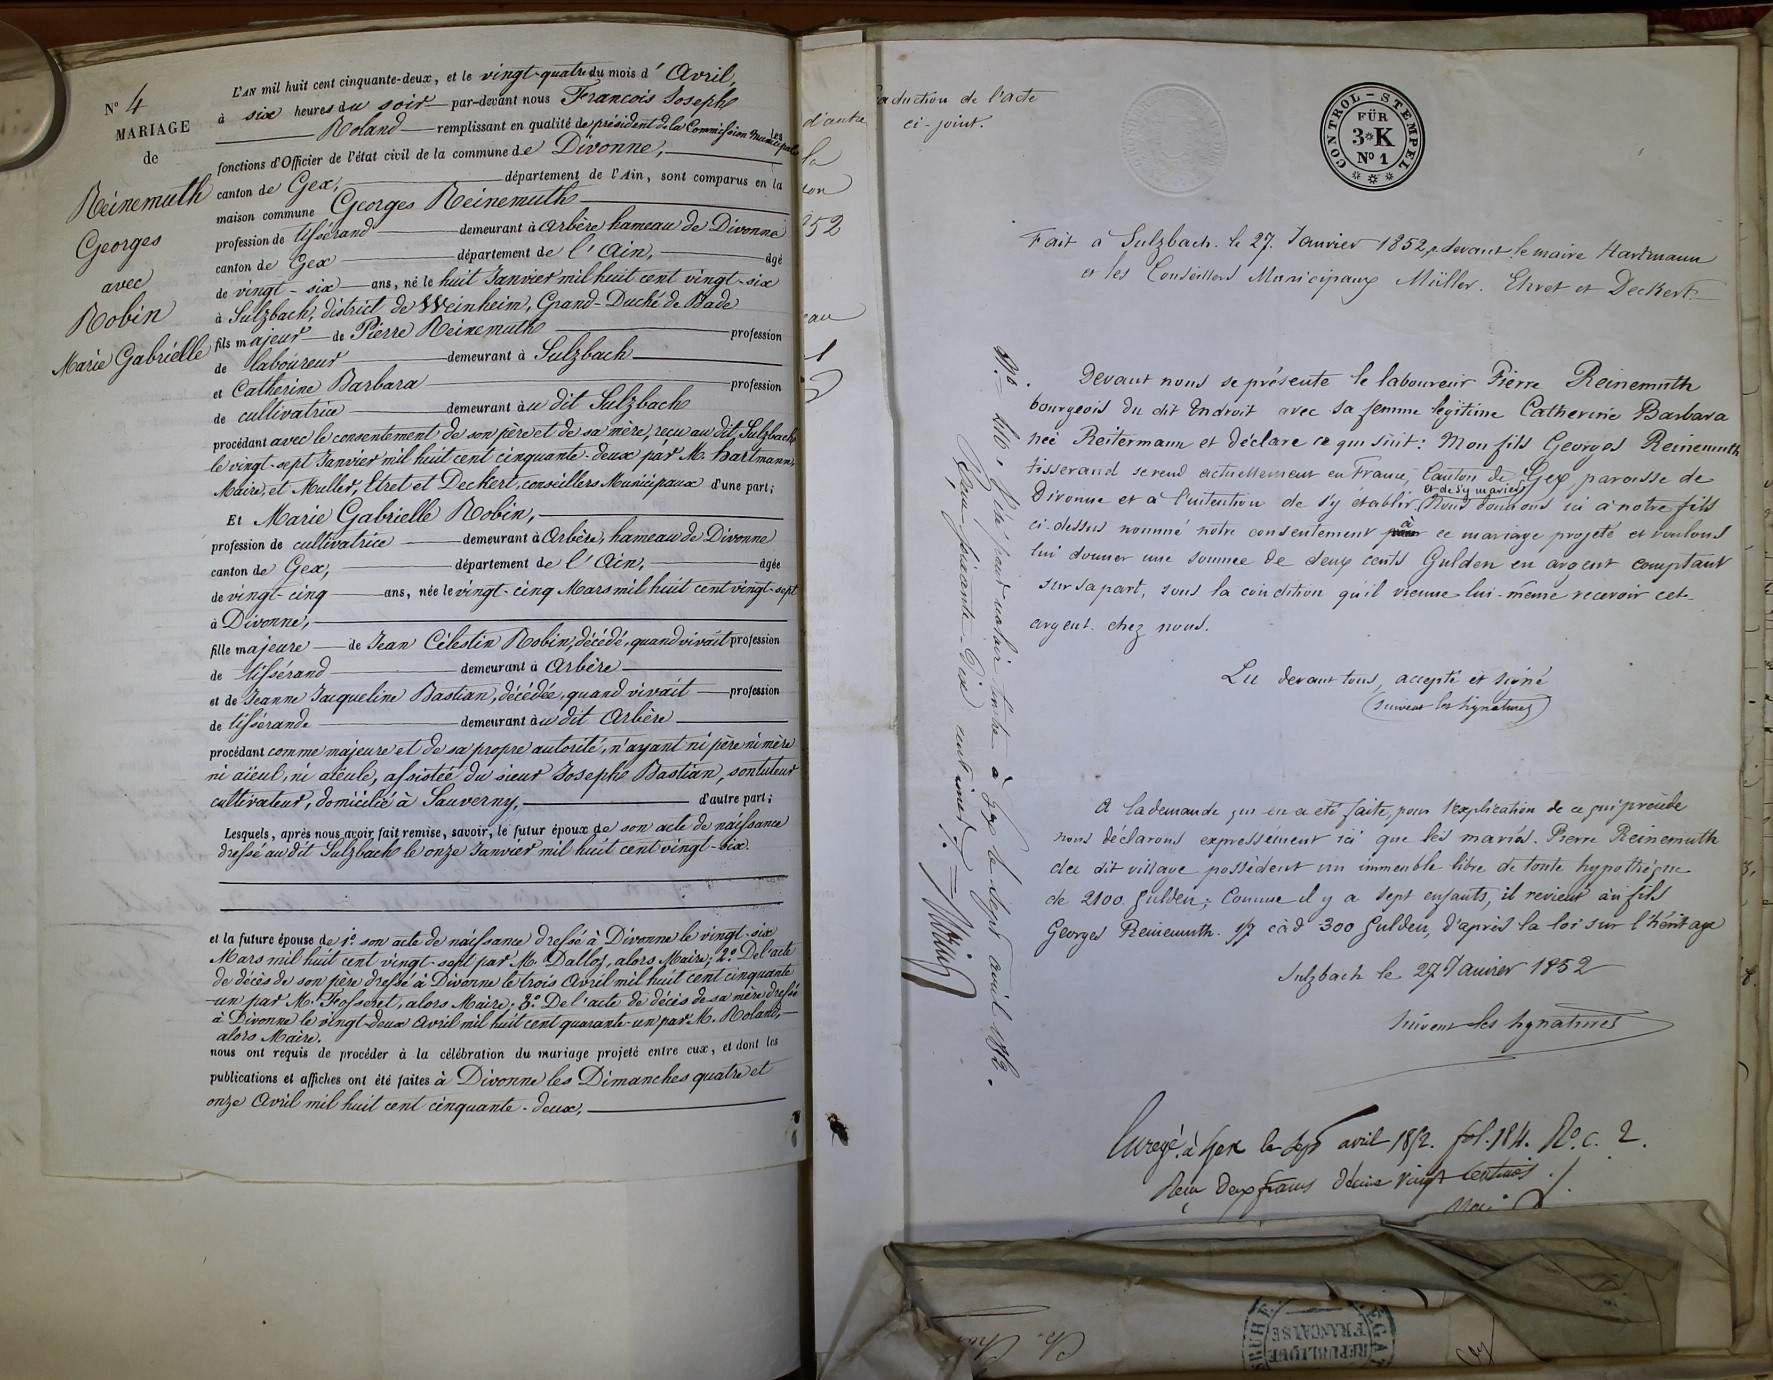 N° 4
MARIAGE
de
Reinemuth
Georges
avec
Robin
Marie Gabrielle
L'AN mil huit cent cinquante-deux, et le vingt-quatre du mois d'Avril,
à six heures du soir par-devant nous François Joseph
Roland remplissant en qualité de président de la Commission Municipale les
fonctions d'Officier de l'état civil de la commune de Divonne,
canton de Gex, département de l'Ain, sont comparus en la
maison commune Georges Reinemuth
profession de tisserand demeurant à Arbère hameau de Divonne
canton de Gex département de l'Ain, âgé
de vingt-six ans, né le huit Janvier mil huit cent vingt-six
à Sulzbach, district de Weinheim, Grand-Duché de Bade
fils majeur de Pierre Reinemuth profession
de laboureur demeurant à Sulzbach
et Catherine Barbara profession
de cultivatrice demeurant au dit Sulzbach
procédant avec le consentement de son père et de sa mère, reçu au dit Sulzbach
le vingt-sept Janvier mil huit cent cinquante-deux par M. Hartmann,
Maire, et Muller, Etret et Deckert, conseillers Municipaux d'une part;
Et Marie Gabrielle Robin,
profession de cultivatrice demeurant à Arbère, hameau de Divonne
canton de Gex, département de l'Ain, âgée
de vingt-cinq ans, née le vingt-cinq Mars mil huit cent vingt-sept
à Divonne,
fille majeure de Jean Célestin Robin, décédé, quand vivait profession
de tisserand demeurant à Arbère
et de Jeanne Jacqueline Bastian, décédée, quand vivait profession
de tisserande demeurant au dit Arbère
procédant comme majeure et de sa propre autorité, n'ayant ni père ni mère
ni aïeul, ni aïeule, assistée du sieur Joseph Bastian, son tuteur
cultivateur, domicilié à Sauverny, d'autre part;
Lesquels, après nous avoir fait remise, savoir, le futur époux de son acte de naissance
dressé au dit Sulzbach le onze Janvier mil huit cent vingt-six.
et la future épouse de 1° son acte de naissance dressé à Divonne le vingt-six
Mars mil huit cent vingt-sept par M. Dalloz, alors Maire; 2° De l'acte
de décès de son père dressé à Divonne le trois Avril mil huit cent cinquante
-un par M. Grosseret, alors Maire; 3° De l'acte de décès de sa mère dressé
à Divonne le vingt-deux Avril mil huit cent quarante-un par M. Roland,
alors Maire.
nous ont requis de procéder à la célébration du mariage projeté entre eux, et dont les
publications et affiches ont été faites à Divonne les Dimanches quatre et
onze Avril mil huit cent cinquante-deux,
d'autre
la
52
aduction de l'acte
ci-joint.
CONTROL-STEMPEL
FÜR
3*K
No 1
Fait à Sulzbach. le 27. Janvier 1852, devant le maire Hartmann
et les Conseillers Municipaux Müller. Ehret et Deckert.
Devant nous se présente le laboureur Pierre Reinemuth
bourgeois du dit Endroit avec sa femme légitime Catherine Barbara
née Reitermann et déclare ce qui suit: Mon fils Georges Reinemuth
tisserand se rend actuellement en France, Canton de Gex, paroisse de
Divonne et a l'intention de s'y établir et de s'y marier. Nous donnons ici à notre fils
ci-dessus nommé notre consentement à ce mariage projeté et voulons
lui donner une somme de deux cents Gulden en argent comptant
sur sa part, sous la condition qu'il vienne lui-même recevoir cet
argent chez nous.
Lu devant tous, accepté et signé
(suivent les signatures)
A la demande qui en a été faite, pour l'explication de ce qui précède
nous déclarons expressément ici que les mariés. Pierre Reinemuth
du dit village possèdent un immeuble libre de toute hypothèque
de 2100 Gulden; Comme il y a sept enfants, il revient au fils
Georges Reinemuth. 1/7 càd 300 Gulden, d'après la loi sur l'héritage
Sulzbach le 27 Janvier 1852
suivent les signatures
Enregé à Gex le sept avril 1852. fol. 184. R°. c. 2.
Reçu Deux francs décime vingt centimes
RÉPUBLIQUE
FRANÇAISE